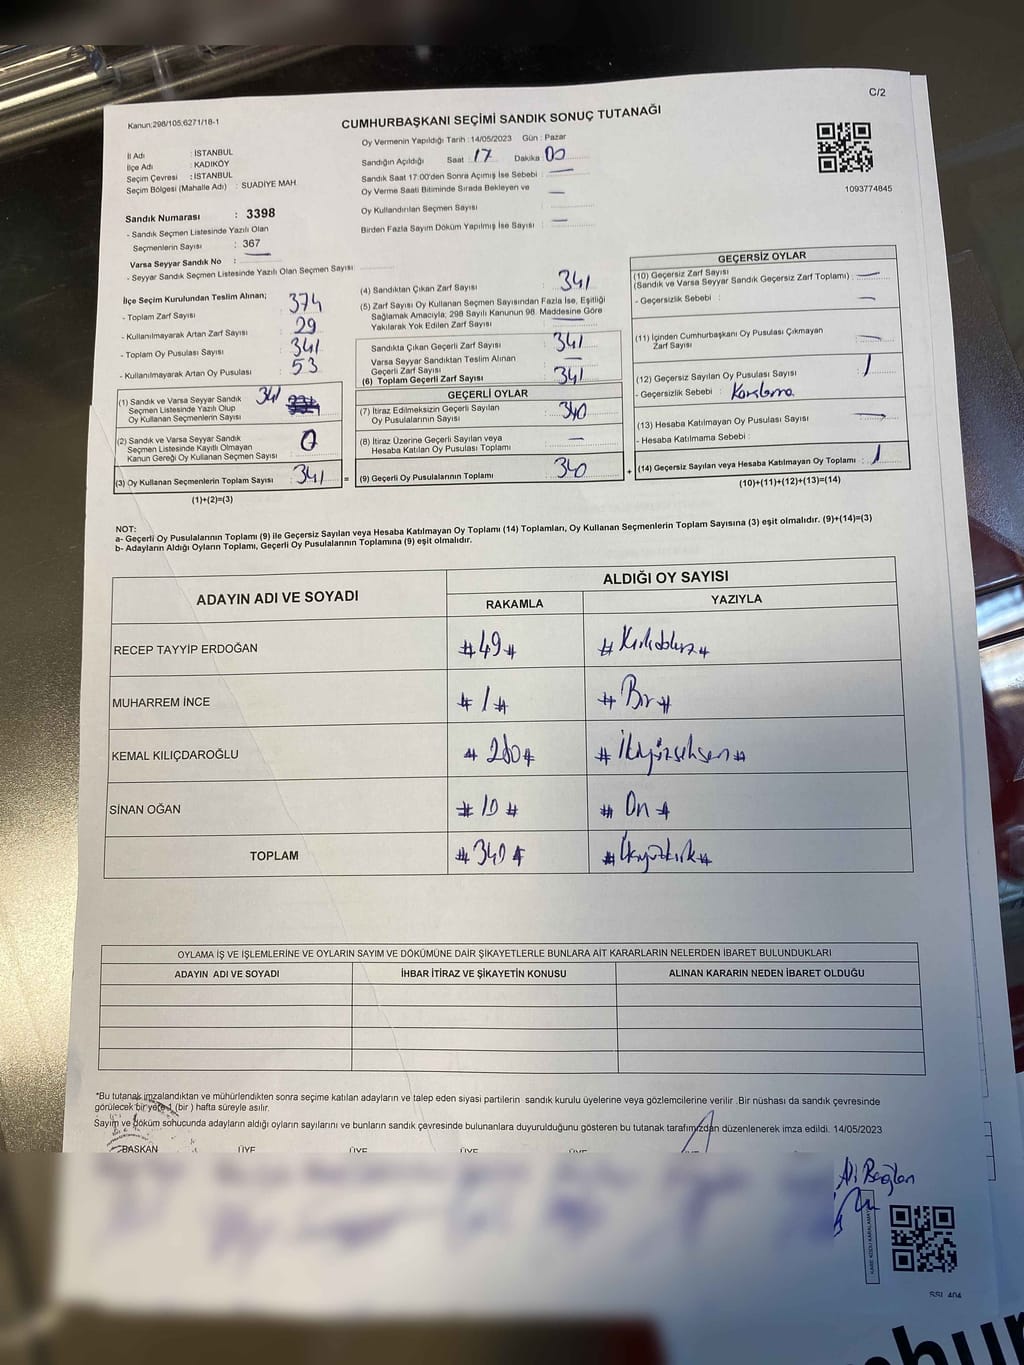 C/2
Kanun:298/105,6271/18-1
CUMHURBAŞKANI SEÇİMİ SANDIK SONUÇ TUTANAĞI
İl Adı : İSTANBUL
İlçe Adı : KADIKÖY
Seçim Çevresi : İSTANBUL
Seçim Bölgesi (Mahalle Adı) : SUADİYE MAH.
Sandık Numarası : 3398
- Sandık Seçmen Listesinde Yazılı Olan
Seçmenlerin Sayısı : 367
Varsa Seyyar Sandık No : —
- Seyyar Sandık Seçmen Listesinde Yazılı Olan Seçmen Sayısı
Oy Vermenin Yapıldığı Tarih : 14/05/2023 Gün : Pazar
Sandığın Açıldığı Saat 17 Dakika 00
Sandık Saat 17:00'den Sonra Açımış İse Sebebi : —
Oy Verme Saati Bitiminde Sırada Bekleyen ve —
Oy Kullandırılan Seçmen Sayısı
Birden Fazla Sayım Döküm Yapılmış İse Sayısı : —
1093774845
İlçe Seçim Kurulundan Teslim Alınan;
- Toplam Zarf Sayısı : 374
- Kullanılmayarak Artan Zarf Sayısı : 29
- Toplam Oy Pusulası Sayısı : 341
- Kullanılmayarak Artan Oy Pusulası : 53
(1) Sandık ve Varsa Seyyar Sandık 341
Seçmen Listesinde Yazılı Olup
Oy Kullanan Seçmenlerin Sayısı
(2) Sandık ve Varsa Seyyar Sandık
Seçmen Listesinde Kayıtlı Olmayan 0
Kanun Gereği Oy Kullanan Seçmen Sayısı
(3) Oy Kullanan Seçmenlerin Toplam Sayısı : 341 =
(1)+(2)=(3)
(4) Sandıktan Çıkan Zarf Sayısı : 341
(5) Zarf Sayısı Oy Kullanan Seçmen Sayısından Fazla İse, Eşitliği
Sağlamak Amacıyla; 298 Sayılı Kanunun 98. Maddesine Göre
Yakılarak Yok Edilen Zarf Sayısı : —
Sandıkta Çıkan Geçerli Zarf Sayısı : 341
Varsa Seyyar Sandıktan Teslim Alınan
Geçerli Zarf Sayısı : —
(6) Toplam Geçerli Zarf Sayısı : 341
GEÇERLİ OYLAR
(7) İtiraz Edilmeksizin Geçerli Sayılan
Oy Pusulalarının Sayısı : 340
(8) İtiraz Üzerine Geçerli Sayılan veya
Hesaba Katılan Oy Pusulası Toplamı : —
(9) Geçerli Oy Pusulalarının Toplamı : 340 +
GEÇERSİZ OYLAR
(10) Geçersiz Zarf Sayısı
(Sandık ve Varsa Seyyar Sandık Geçersiz Zarf Toplamı) : —
- Geçersizlik Sebebi : —
(11) İçinden Cumhurbaşkanı Oy Pusulası Çıkmayan
Zarf Sayısı : —
(12) Geçersiz Sayılan Oy Pusulası Sayısı : 1
- Geçersizlik Sebebi : Karalama
(13) Hesaba Katılmayan Oy Pusulası Sayısı : —
- Hesaba Katılmama Sebebi :
(14) Geçersiz Sayılan veya Hesaba Katılmayan Oy Toplamı : 1
(10)+(11)+(12)+(13)=(14)
NOT:
a- Geçerli Oy Pusulalarının Toplamı (9) ile Geçersiz Sayılan veya Hesaba Katılmayan Oy Toplamı (14) Toplamları, Oy Kullanan Seçmenlerin Toplam Sayısına (3) eşit olmalıdır. (9)+(14)=(3)
b- Adayların Aldığı Oyların Toplamı, Geçerli Oy Pusulalarının Toplamına (9) eşit olmalıdır.
ADAYIN ADI VE SOYADI ALDIĞI OY SAYISI
RAKAMLA YAZIYLA
RECEP TAYYİP ERDOĞAN #49# #Kırkdokuz#
MUHARREM İNCE #1# #Bir#
KEMAL KILIÇDAROĞLU #280# #İkiyüzseksen#
SİNAN OĞAN #10# #On#
TOPLAM #340#
OYLAMA İŞ VE İŞLEMLERİNE VE OYLARIN SAYIM VE DÖKÜMÜNE DAİR ŞİKAYETLERLE BUNLARA AİT KARARLARIN NELERDEN İBARET BULUNDUKLARI
ADAYIN ADI VE SOYADI İHBAR İTİRAZ VE ŞİKAYETİN KONUSU ALINAN KARARIN NEDEN İBARET OLDUĞU
*Bu tutanak imzalandıktan ve mühürlendikten sonra seçime katılan adayların ve talep eden siyasi partilerin sandık kurulu üyelerine veya gözlemcilerine verilir .Bir nüshası da sandık çevresinde
görülecek bir yere 1 (bir ) hafta süreyle asılır.
Sayım ve döküm sonucunda adayların aldığı oyların sayılarını ve bunların sandık çevresinde bulunanlara duyurulduğunu gösteren bu tutanak tarafımızdan düzenlenerek imza edildi. 14/05/2023
BAŞKAN ÜYE ÜYE ÜYE ÜYE
KARE KODU KARALAMAYINIZ
SSL 404